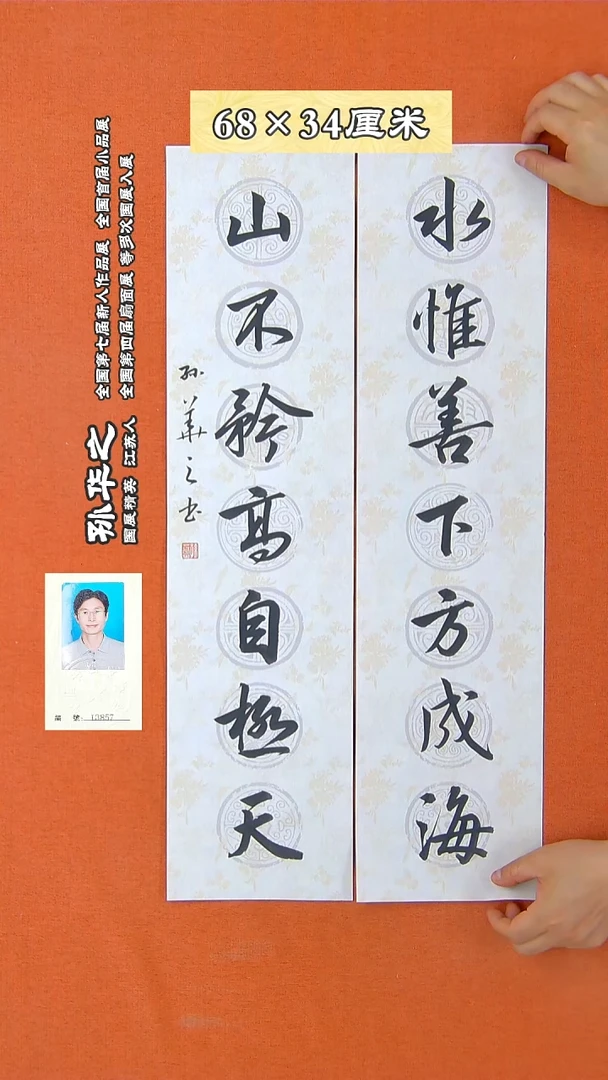 68×34厘米
水惟善下方成海
山不矜高自极天
孙华之书
孙华之
国展精英 江苏人
全国第七届新人作品展 全国首届小品展
全国第四届扇面展 等多次国展入展
编 号 13857